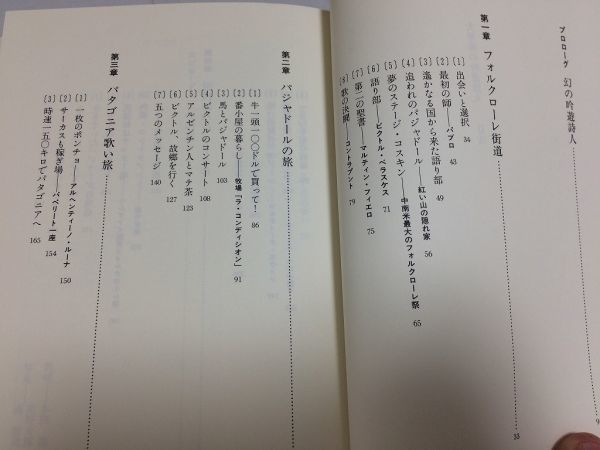 プロローグ 幻の吟遊詩人………………… 9
第一章 フォルクローレ街道………………… 33
［1］出会いと選択 34
［2］最初の師——パブロ 43
［3］遙かなる国から来た語り部 49
［4］追われのパジャドール——紅い山の隠れ家 56
［5］夢のステージ・コスキン——中南米最大のフォルクローレ祭 65
［6］語り部——ビクトル・ベラスケス 71
［7］第二の聖書——マルティン・フィエロ 75
［8］歌の決闘——コントラプント 79
第二章 パジャドールの旅…………………
［1］牛一頭一〇〇ドルで買って！ 86
［2］番小屋の暮らし——牧場「ラ・コンディシオン」 91
［3］馬とパジャドール 103
［4］ビクトルのコンサート 108
［5］アルゼンチン人とマテ茶 123
［6］ビクトル、故郷を行く 127
［7］五つのメッセージ 140
第三章 パタゴニア歌い旅…………………
［1］一枚のポンチョ——アルヘンティーノ・ルーナ 150
［2］サーカスも稼ぎ場——パペリート一座 154
［3］時速一五〇キロでパタゴニアへ 165